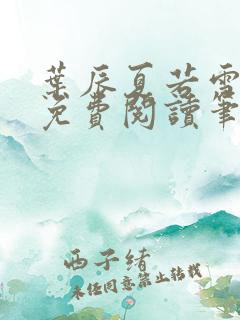 葉辰夏若雪
免費閱讀筆
西子緒
未經同意禁止轉載